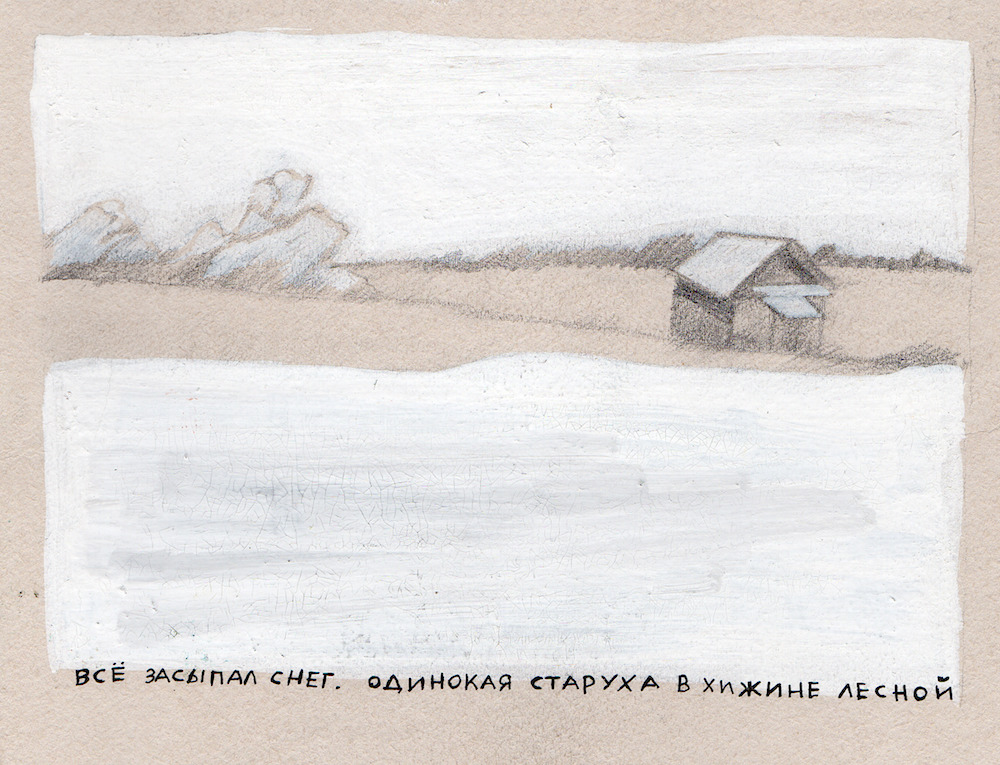 ВСЁ ЗАСЫПАЛ СНЕГ. ОДИНОКАЯ СТАРУХА В ХИЖИНЕ ЛЕСНОЙ